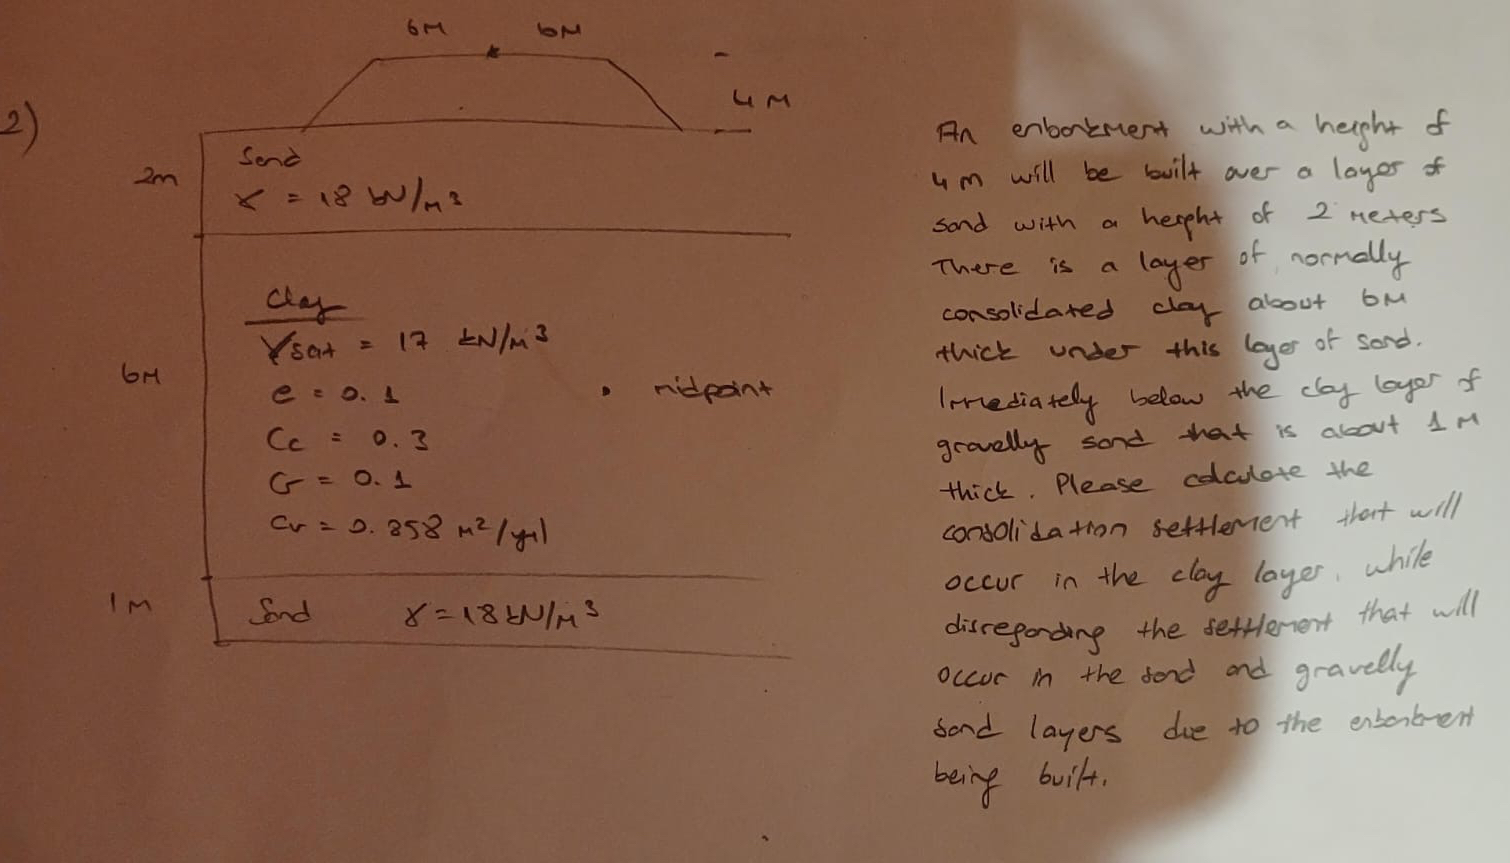 2)
6M 6M
4 M
2m
Sand
γ = 18 kN/m3
Clay
γsat = 17 kN/m3
e = 0.1
6M
• midpoint
Cc = 0.3
Cr = 0.1
Cv = 0.858 m2/yıl
1M
Sand γ = 18 kN/m3
An enbankment with a height of
4 m will be built over a layer of
sand with a height of 2 meters
There is a layer of normally
consolidated clay about 6M
thick under this layer of sand.
Immediately below the clay layer of
gravelly sand that is about 1 M
thick. Please calculate the
consolidation settlement that will
occur in the clay layer, while
disregarding the settlement that will
occur in the sand and gravelly
sand layers due to the enbankment
being built.